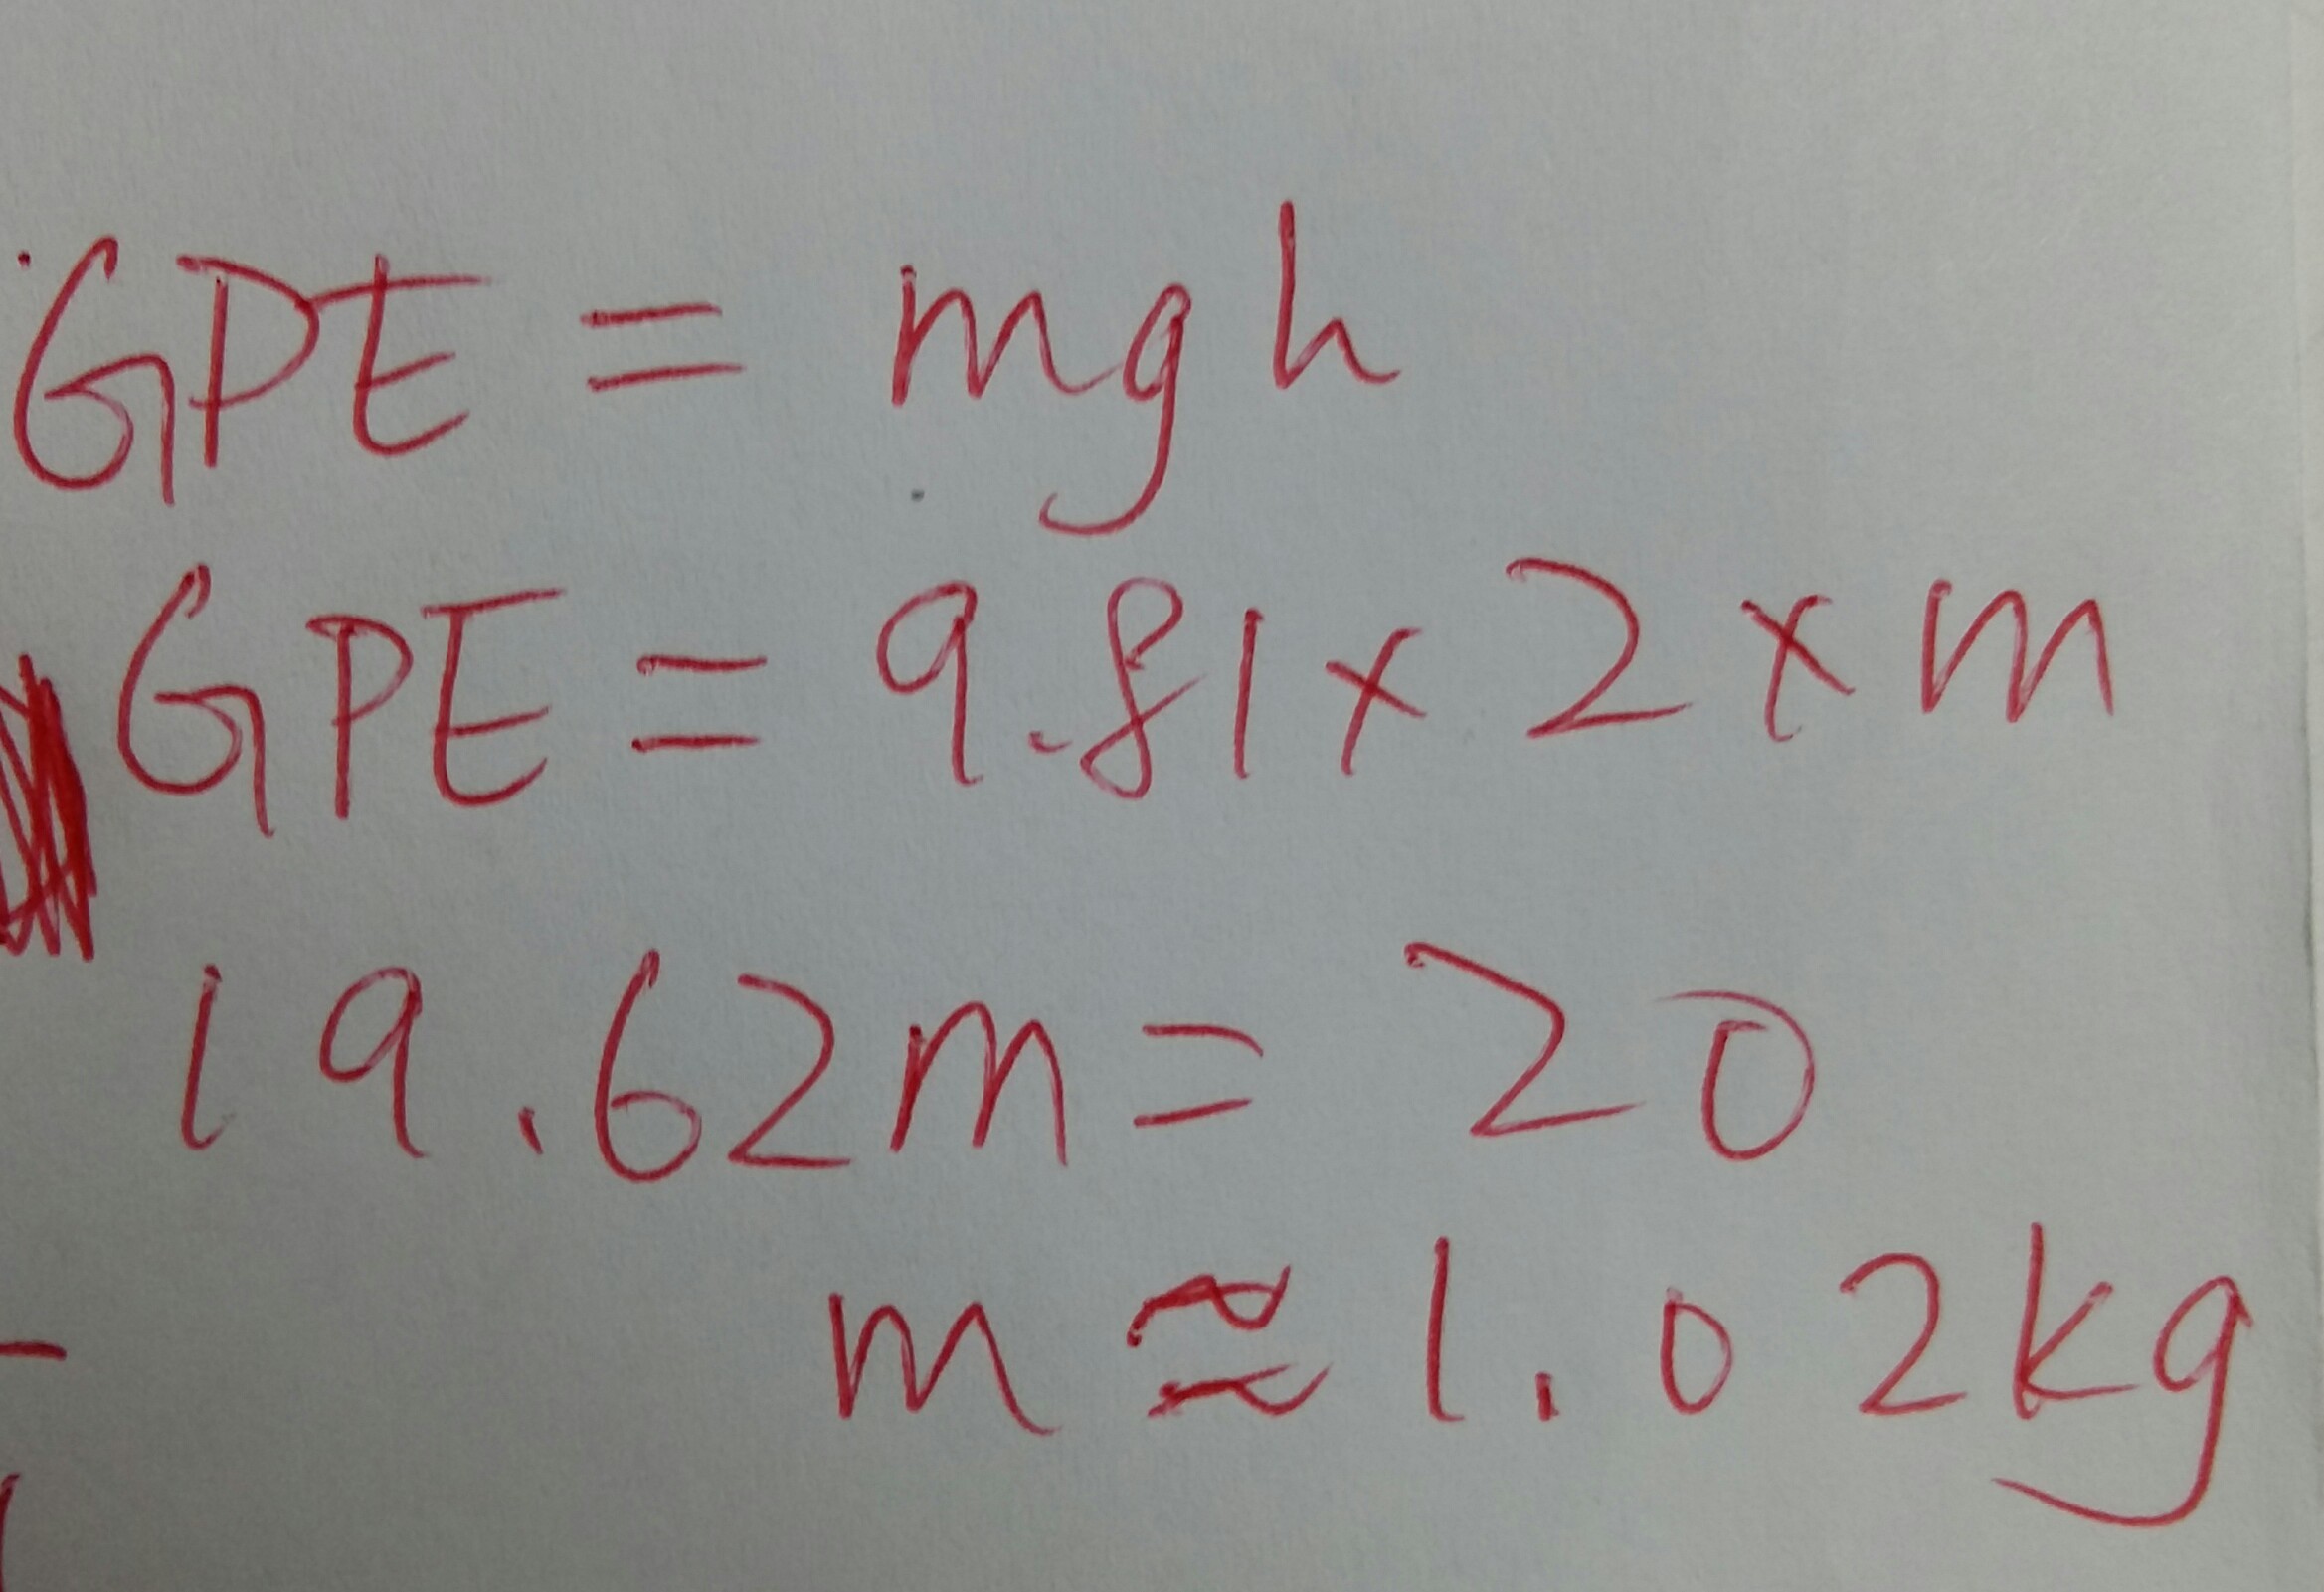 GPE = mgh
GPE = 9.81 × 2 × m
19.62m = 20
m ≈ 1.02kg